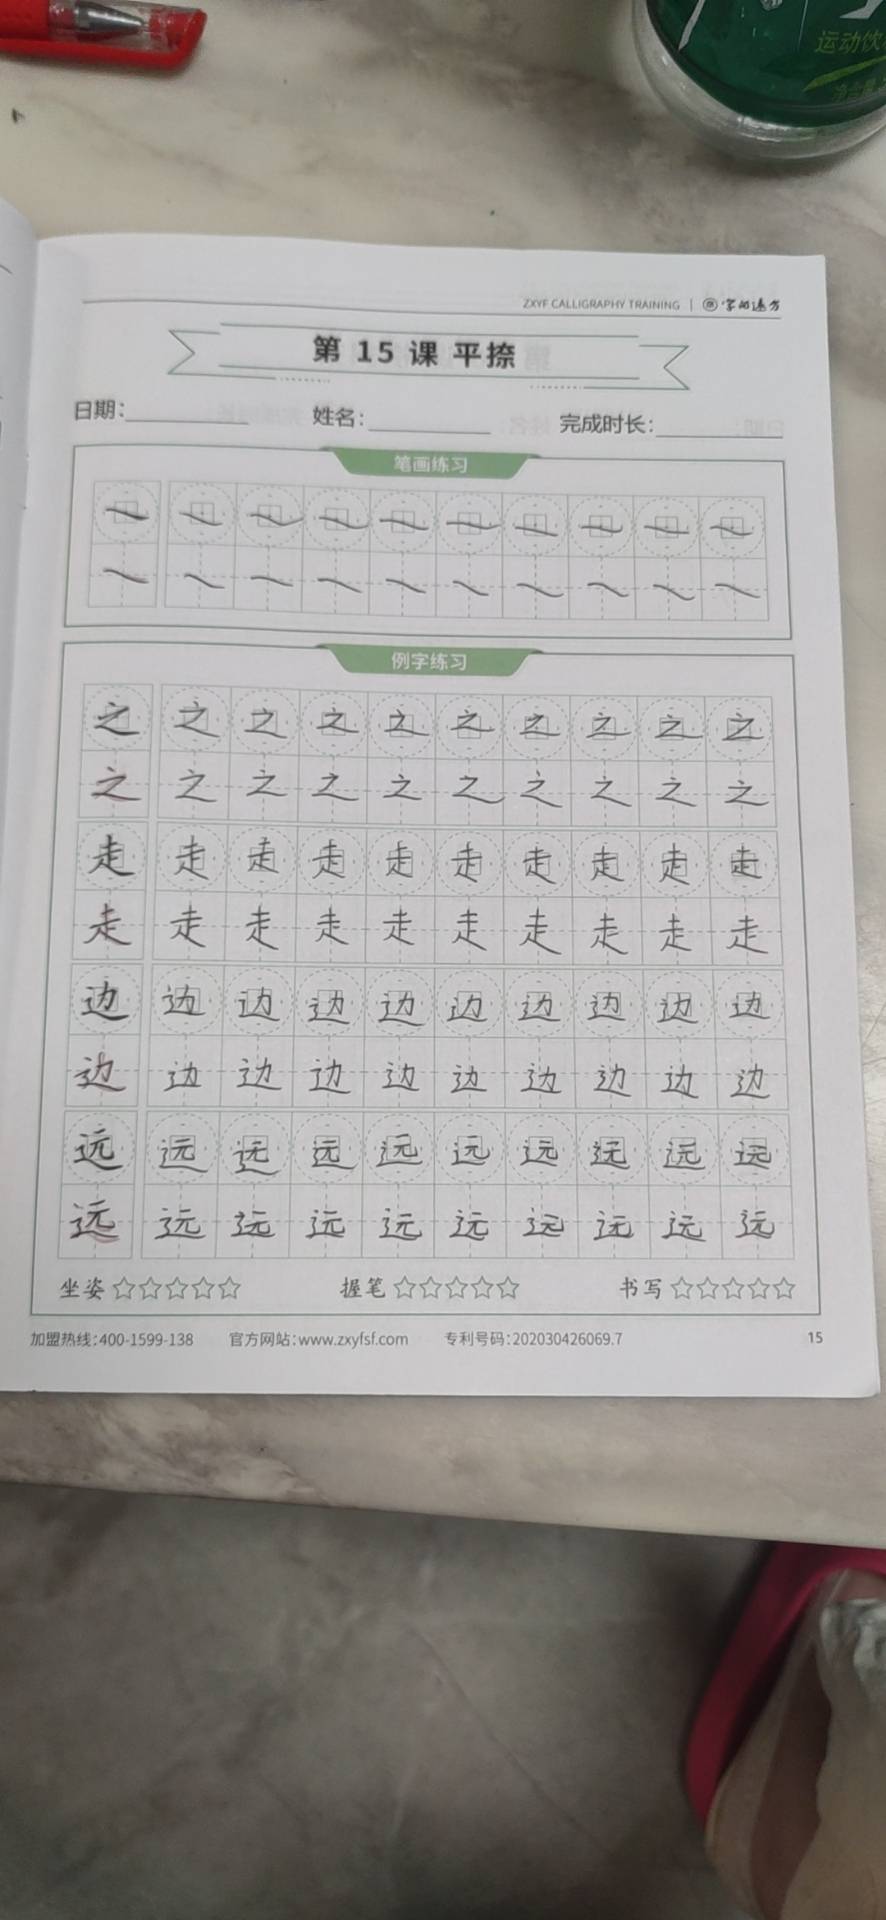 运动饮
净含量
ZXYF CALLIGRAPHY TRAINING | 字的远方
第 15 课 平捺
日期: 姓名: 完成时长:
笔画练习
例字练习
之 之 之 之 之 之 之 之 之 之
之 之 之 之 之 之 之 之 之 之
走 走 走 走 走 走 走 走 走 走
走 走 走 走 走 走 走 走 走 走
边 边 边 边 边 边 边 边 边 边
边 边 边 边 边 边 边 边 边 边
远 远 远 远 远 远 远 远 远 远
远 远 远 远 远 远 远 远 远 远
坐姿☆☆☆☆☆ 握笔☆☆☆☆☆ 书写☆☆☆☆☆
加盟热线:400-1599-138 官方网站:www.zxyfsf.com 专利号码:202030426069.7 15